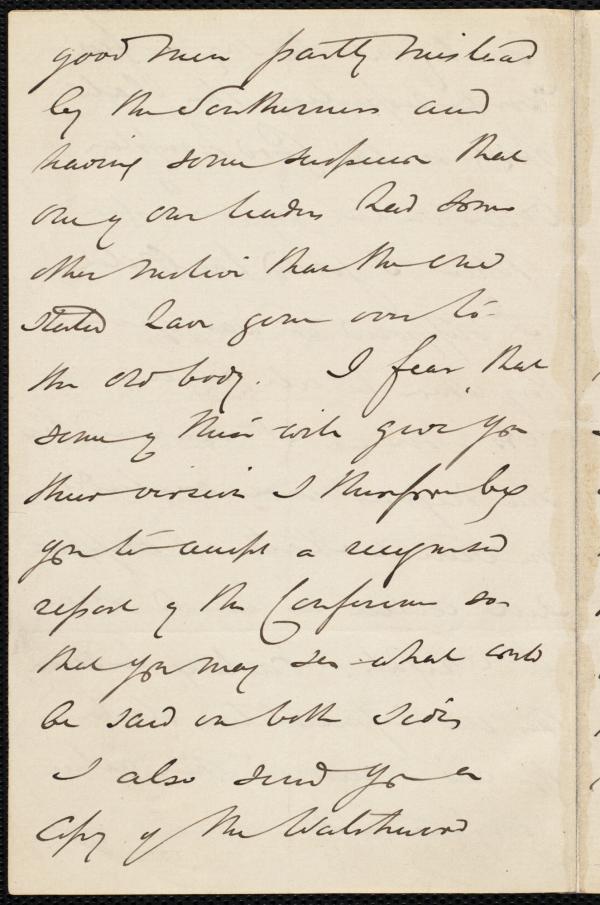 good men partly mislead
by the Southerners and
having some suspicion that
one of our leaders had some
other motive than the one
stated have gone over to
the old body. I fear that
some of these will give you
their version I therefore beg
you to accept a recognised
report of the Conference so
that you may see what could
be said on both sides
I also send you a
copy of the Watchword